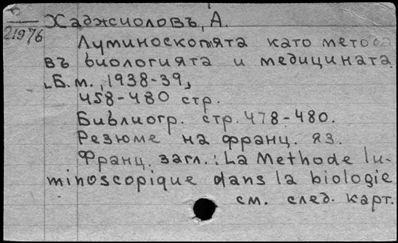 Б
21976
Хаджиоловъ, А.
Луминоскопията като метода
въ биологията и медицината
[Б. м., 1938-39]
458-480 стр.
Библиогр. стр. 478-480.
Резюме на франц. яз.
Франц. загл.: La Methode lu-
minoscopique dans la biologie
см. след. карт.